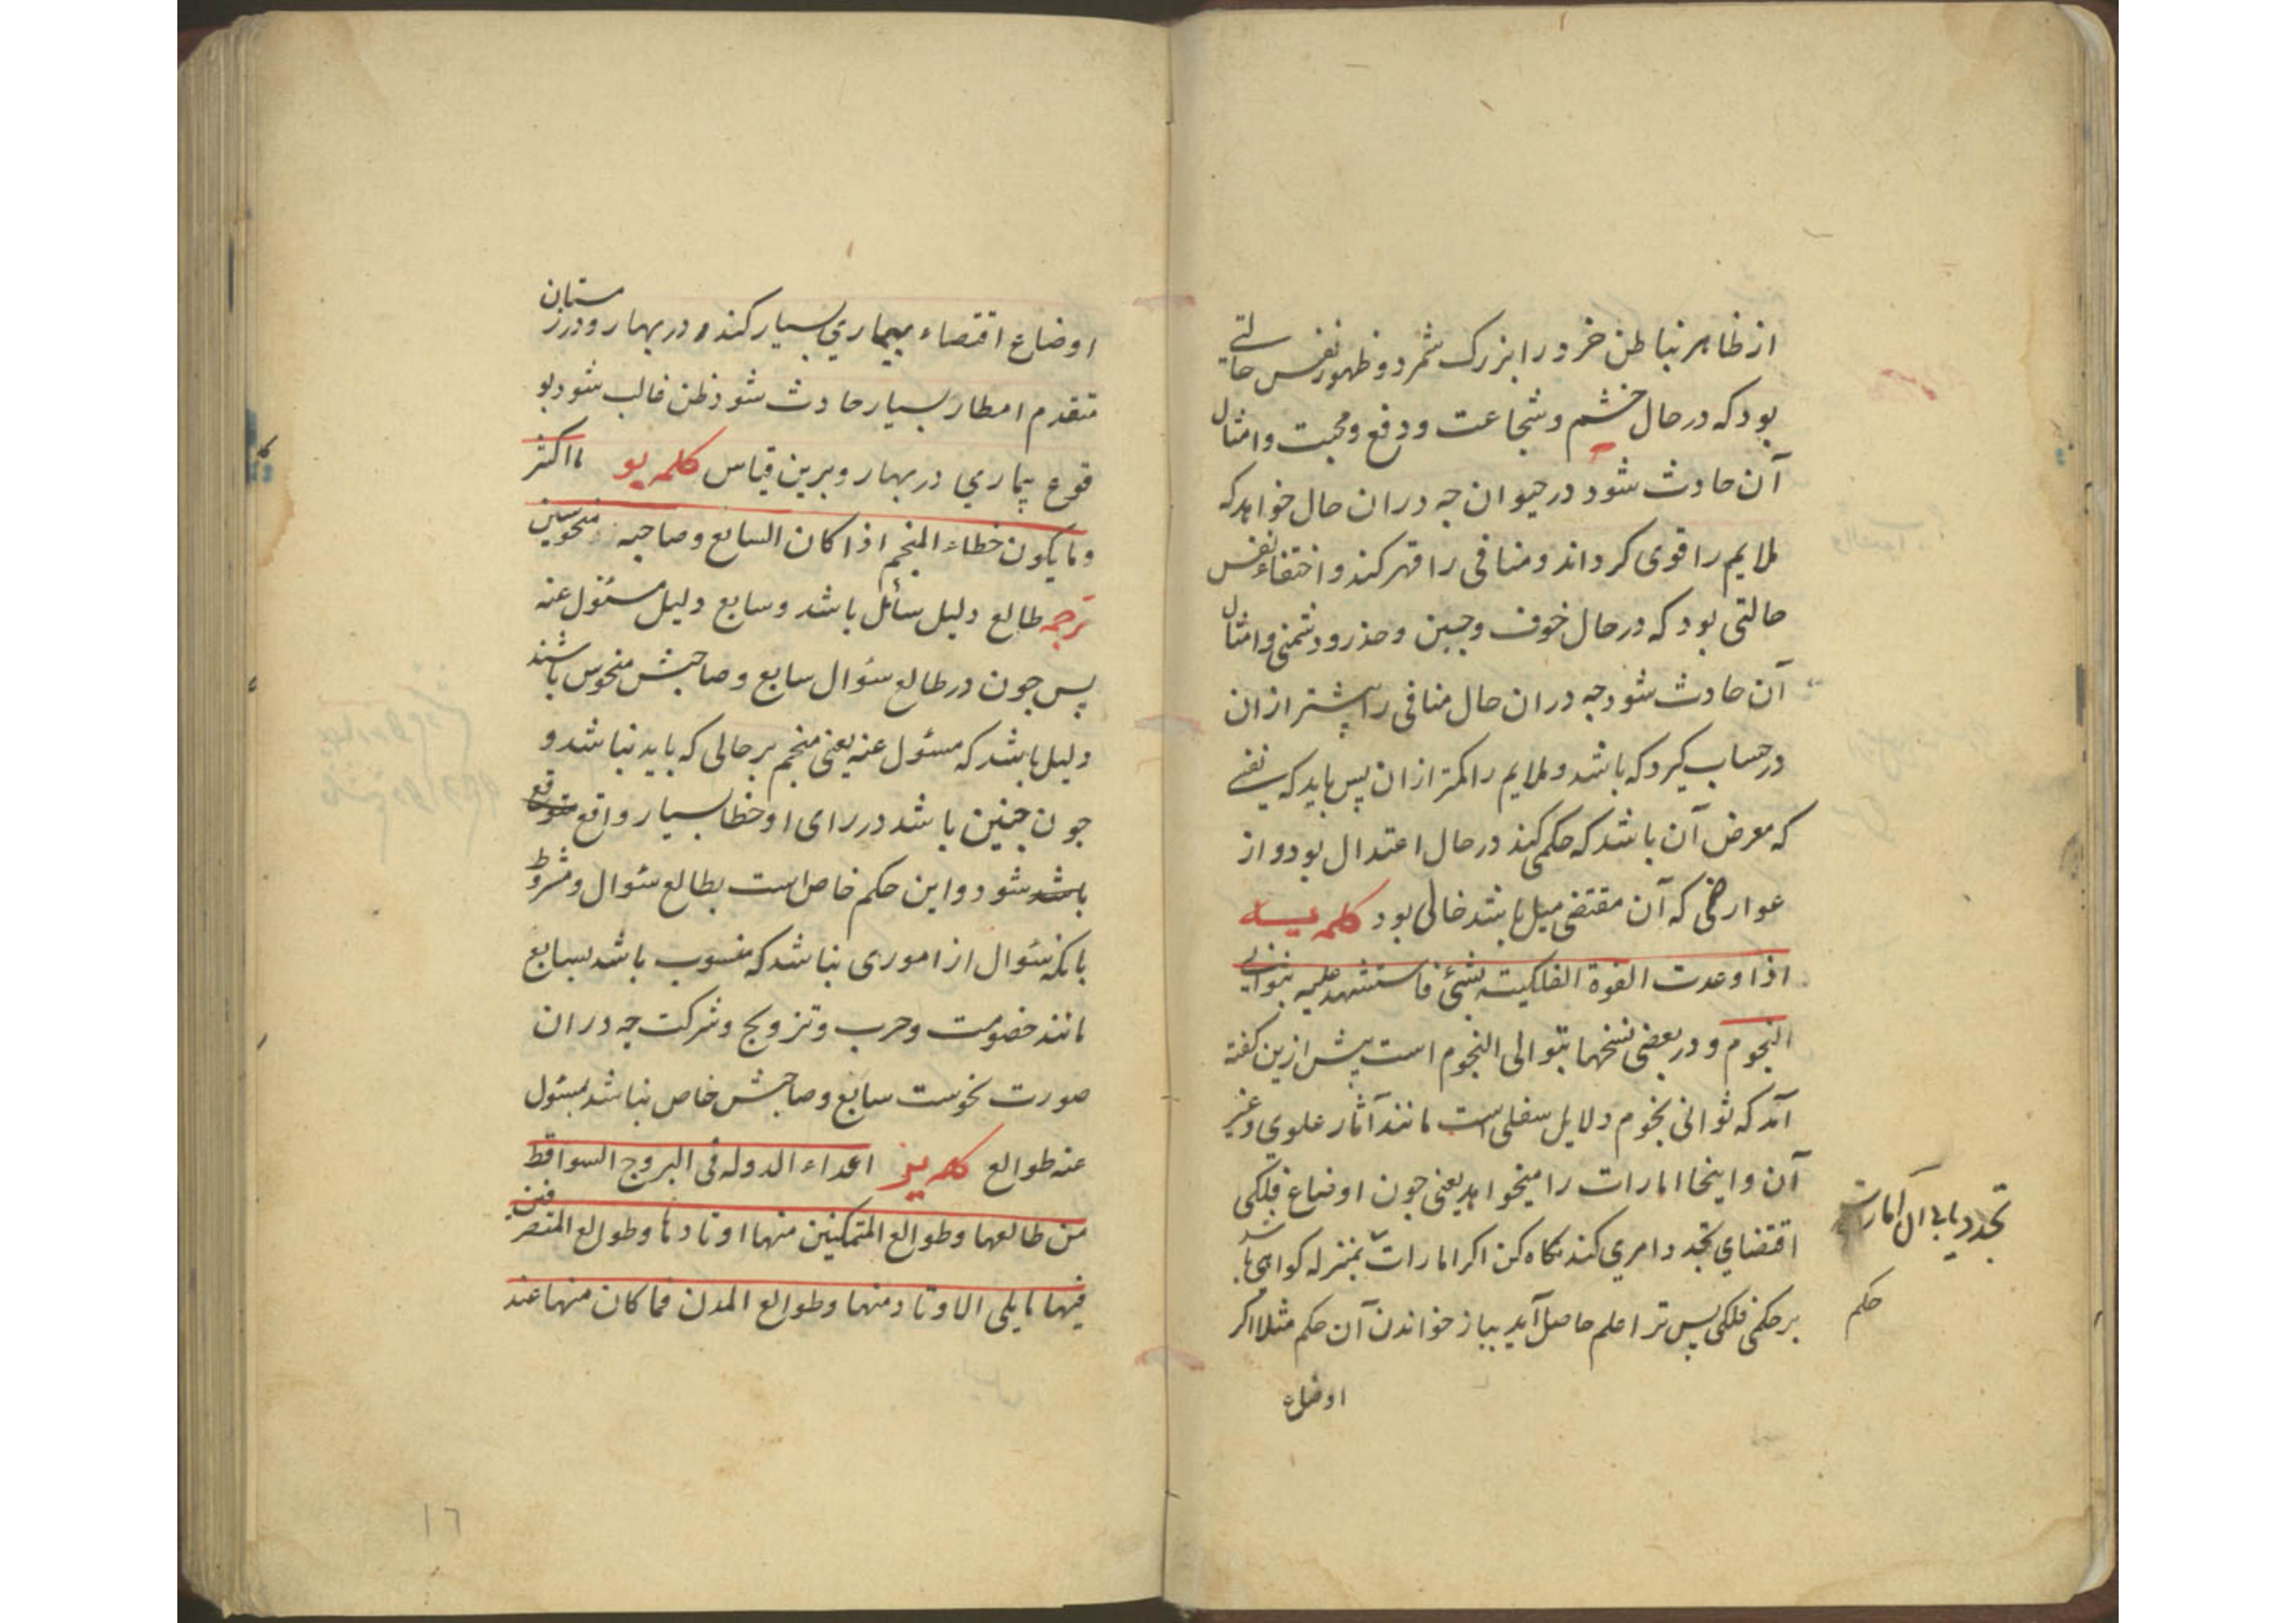 از ظاهر نباطن خرد را بزرگ شمرد و ظهور نفس حالتی
بود که در حال خشم و شجاعت و دفع و محبت و امثال
آن حادث شود در حیوان چه دران حال خواهد که
ملایم را قوی کرداند و منافی را قهر کند و اختفاء نفس
حالتی بود که در حال خوف و جبن و حذر و دشمنی و امثال
آن حادث شود چه دران حال منافی را بیشتر ازان
در حساب کیرد که باشد و ملایم را کمتر ازان پس باید که نفسی
که معرض آن باشد که حکمی کند در حال اعتدال بود و از
عوارضی که آن مقتضی میل باشد خالی بود کلمه یه
اذا وعدت القوة الفلکیة بشئ فاستشهد علیه بثوانی
النجوم و در بعضی نسخها بتوالی النجوم است پیش ازین کفته
آمد که ثوانی نجوم دلایل سفلی است مانند آثار علوی و غیر
آن و اینجا امارات را میخواهد یعنی چون اوضاع فلکی
اقتضای تجدد امری کند نکاه کن اکر امارات بمنزله کواهی باشد
بر حکمی فلکی پس ترا علم حاصل آید بباز خواندن آن حکم مثلا اکر
اوضاع
تجدد یابد آن امارات
حکم
اوضاع اقتضاء بیماری بسیار کند و در بهار و در زمستان
متقدم امطار بسیار حادث شود ظن غالب شود بو
قوع بیماری در بهار و برین قیاس کلمه یو ما اکثر
و ما یکون خطاء المنجم اذا کان السابع و صاحبه منحوسین
ترجمه طالع دلیل سائل باشد و سابع دلیل مسئول عنه
پس چون در طالع سؤال سابع و صاحبش منحوس باشند
دلیل باشد که مسئول عنه یعنی منجم بر حالی که باید نباشد و
چون چنین باشد در رای او خطا بسیار واقع متوقع
باشد شود و این حکم خاص است بطالع سؤال و مشروط
بانکه سؤال از اموری نباشد که منسوب باشد بسابع
مانند خصومت و حرب و تزویج و شرکت چه دران
صورت نحوست سابع و صاحبش خاص نباشد بمسئول
عنه طوالع کلمه یز اعداء الدوله فی البروج السواقط
من طالعها و طوالع المتمکنین منها اوتادها و طوالع المتصرفین
فیها ما یلی الاوتاد منها و طوالع المدن فما کان منها عند
١٦